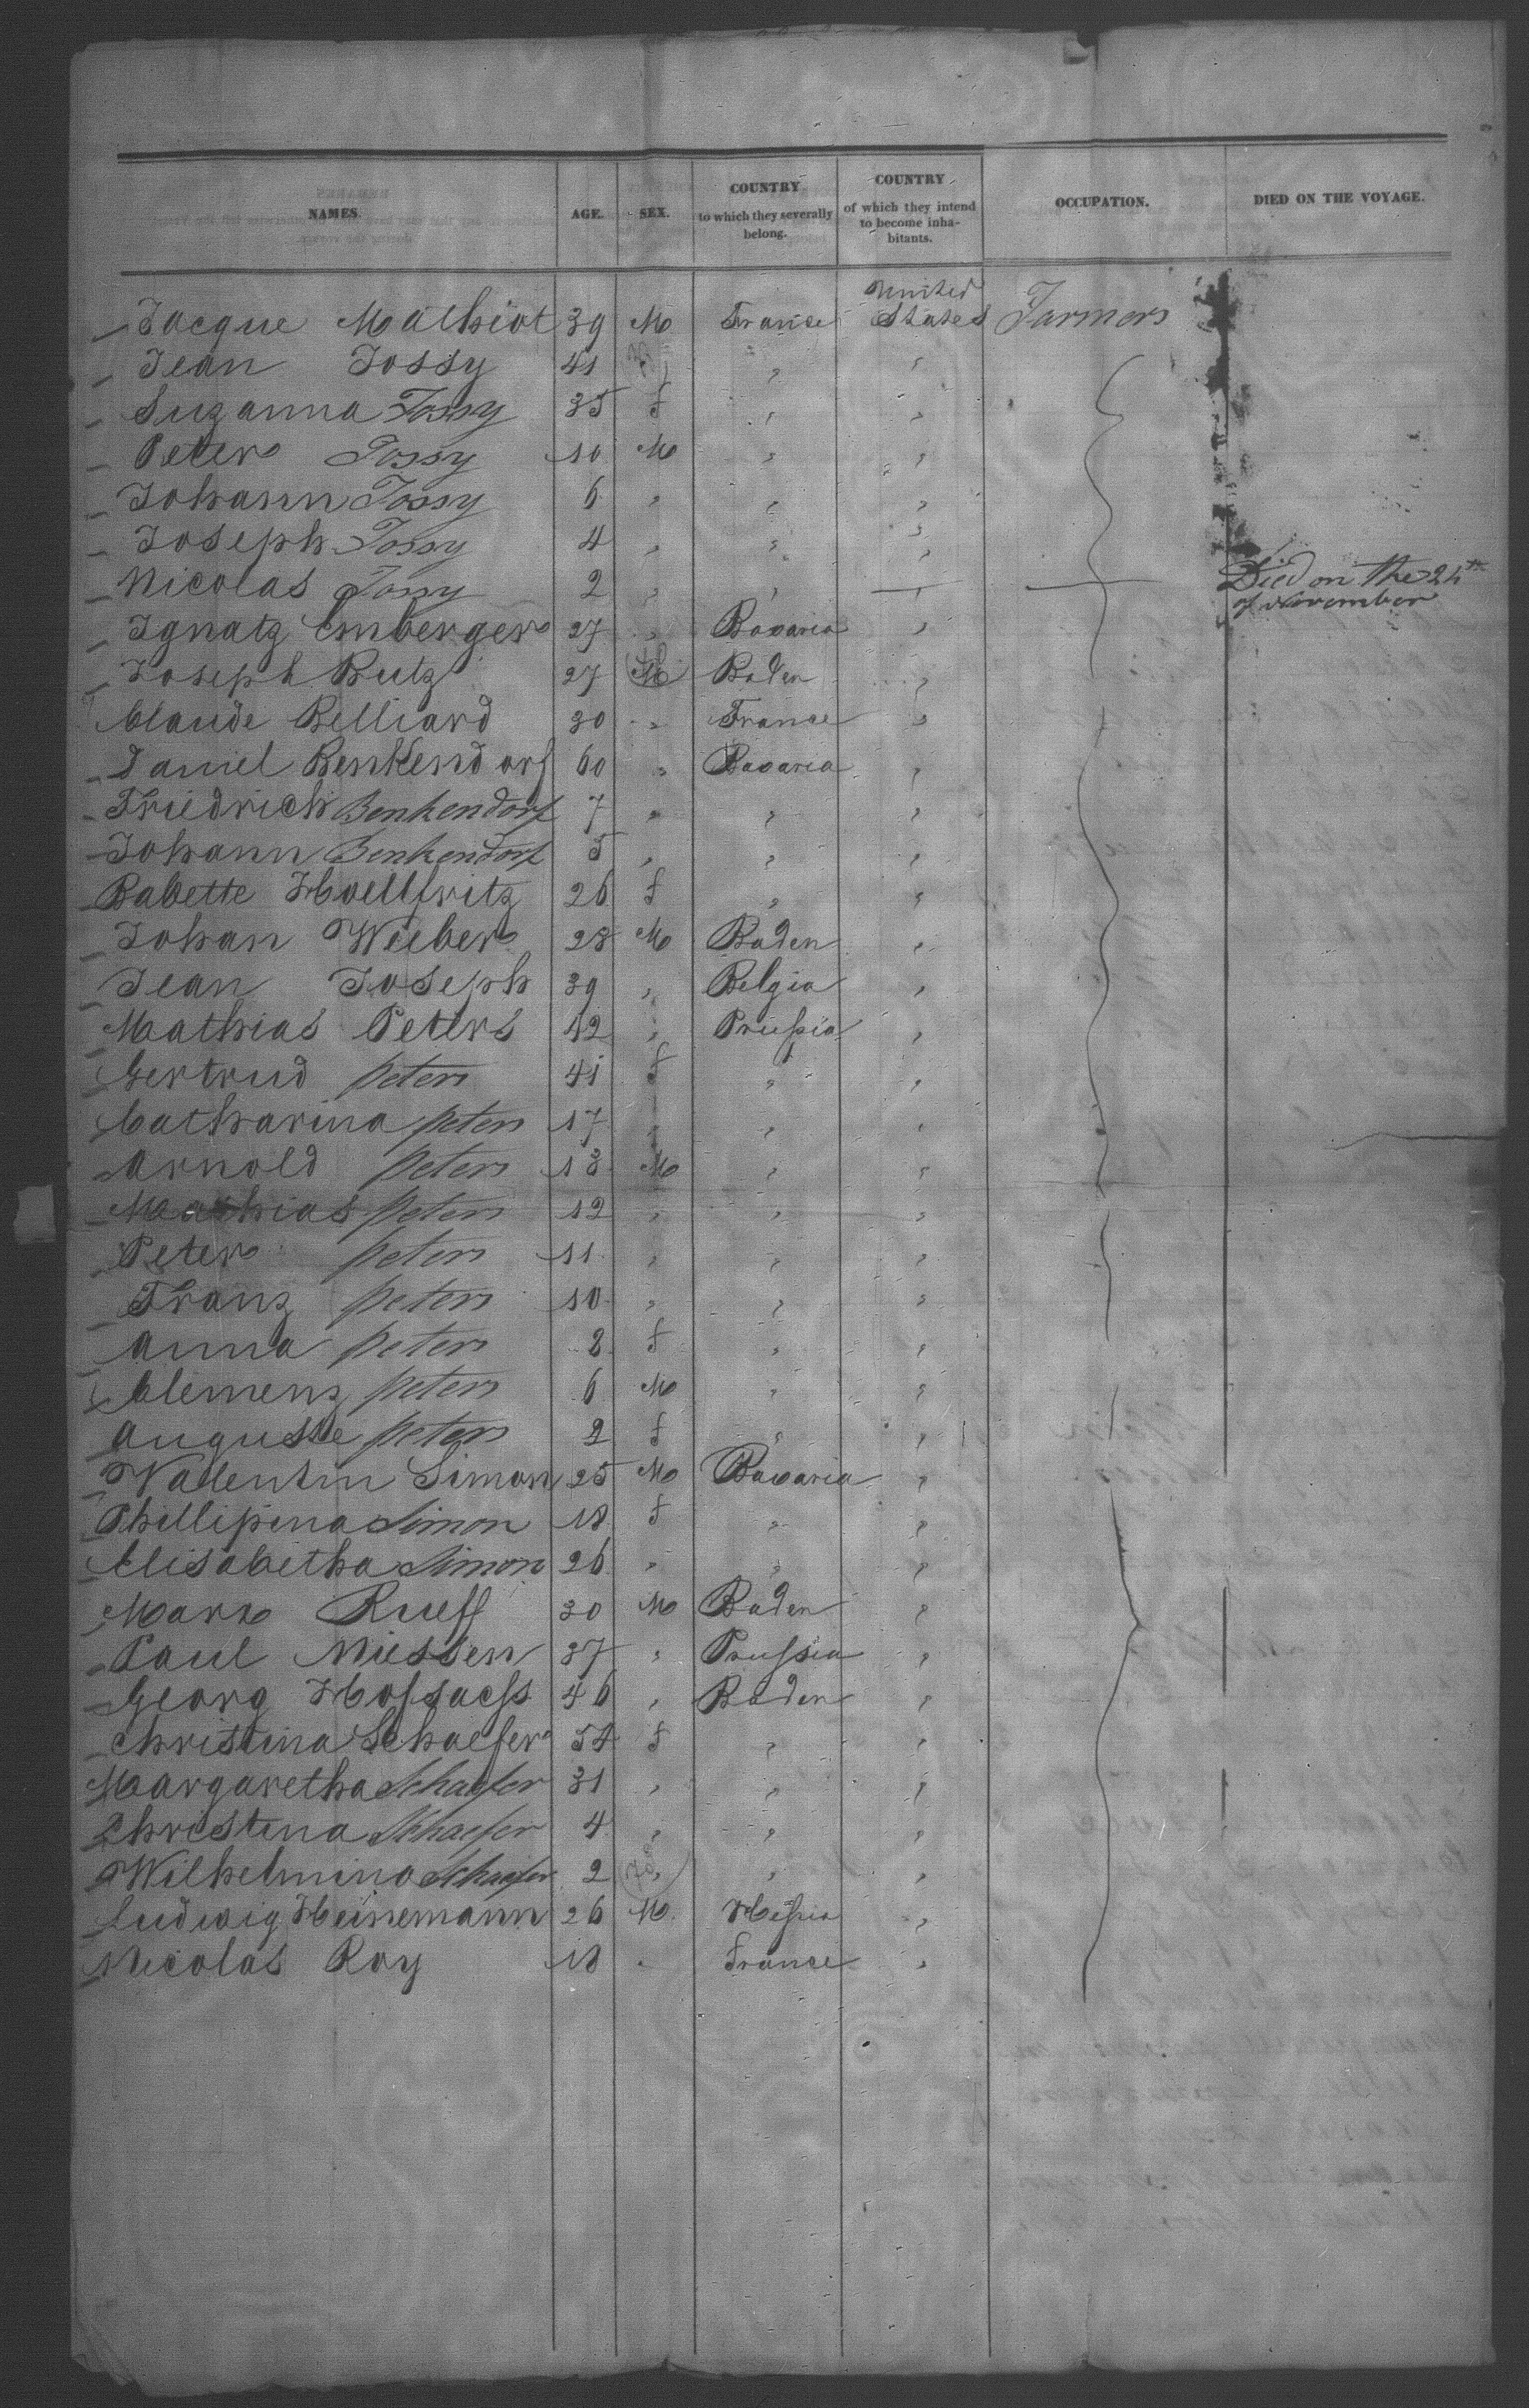 NAMES. AGE. SEX. COUNTRY to which they severally belong. COUNTRY of which they intend to become inhabitants. OCCUPATION. DIED ON THE VOYAGE.
Jacque Mathiot 39 M France United States Farmers
Jean Jossy 41 " "
Suzanna Jossy 35 f " "
Peter Jossy 10 M " "
Johann Jossy 6 " " "
Joseph Jossy 4 " " "
Nicolas Jossy 2 " " — Died on the 24th of November
Ignatz Emberger 27 " Bavaria "
Joseph Rutz 27 M Baden "
Claude Belliard 30 " France "
Daniel Benkendorf 60 " Bavaria "
Friedrich Benkendorf 7 " " "
Johann Benkendorf 5 " " "
Babette Hoellfritz 26 f " "
Johan Weeber 28 M Baden "
Jean Joseph 39 " Belgia "
Mathias Peters 42 " Prussia "
Gertrud Peters 41 f " "
Catharina Peters 17 " " "
Arnold Peters 13 M " "
Mathias Peters 12 " " "
Peter Peters 11 " " "
Franz Peters 10 " " "
Anna Peters 8 f " "
Clemenz Peters 6 M " "
Auguste Peters 2 f " "
Valentin Simon 25 M Bavaria "
Phillipina Simon 18 f " "
Elisabetha Simon 26 " " "
Marx Rueff 30 M Baden "
Paul Niessen 37 " Prussia "
Georg Hofsaess 46 " Baden "
Christina Schaefer 54 f " "
Margaretha Schaefer 31 " " "
Christina Schaefer 4 " " "
Wilhelmina Schaefer 2 " " "
Ludwig Heinemann 26 M Hessia "
Nicolas Roy 18 " France "